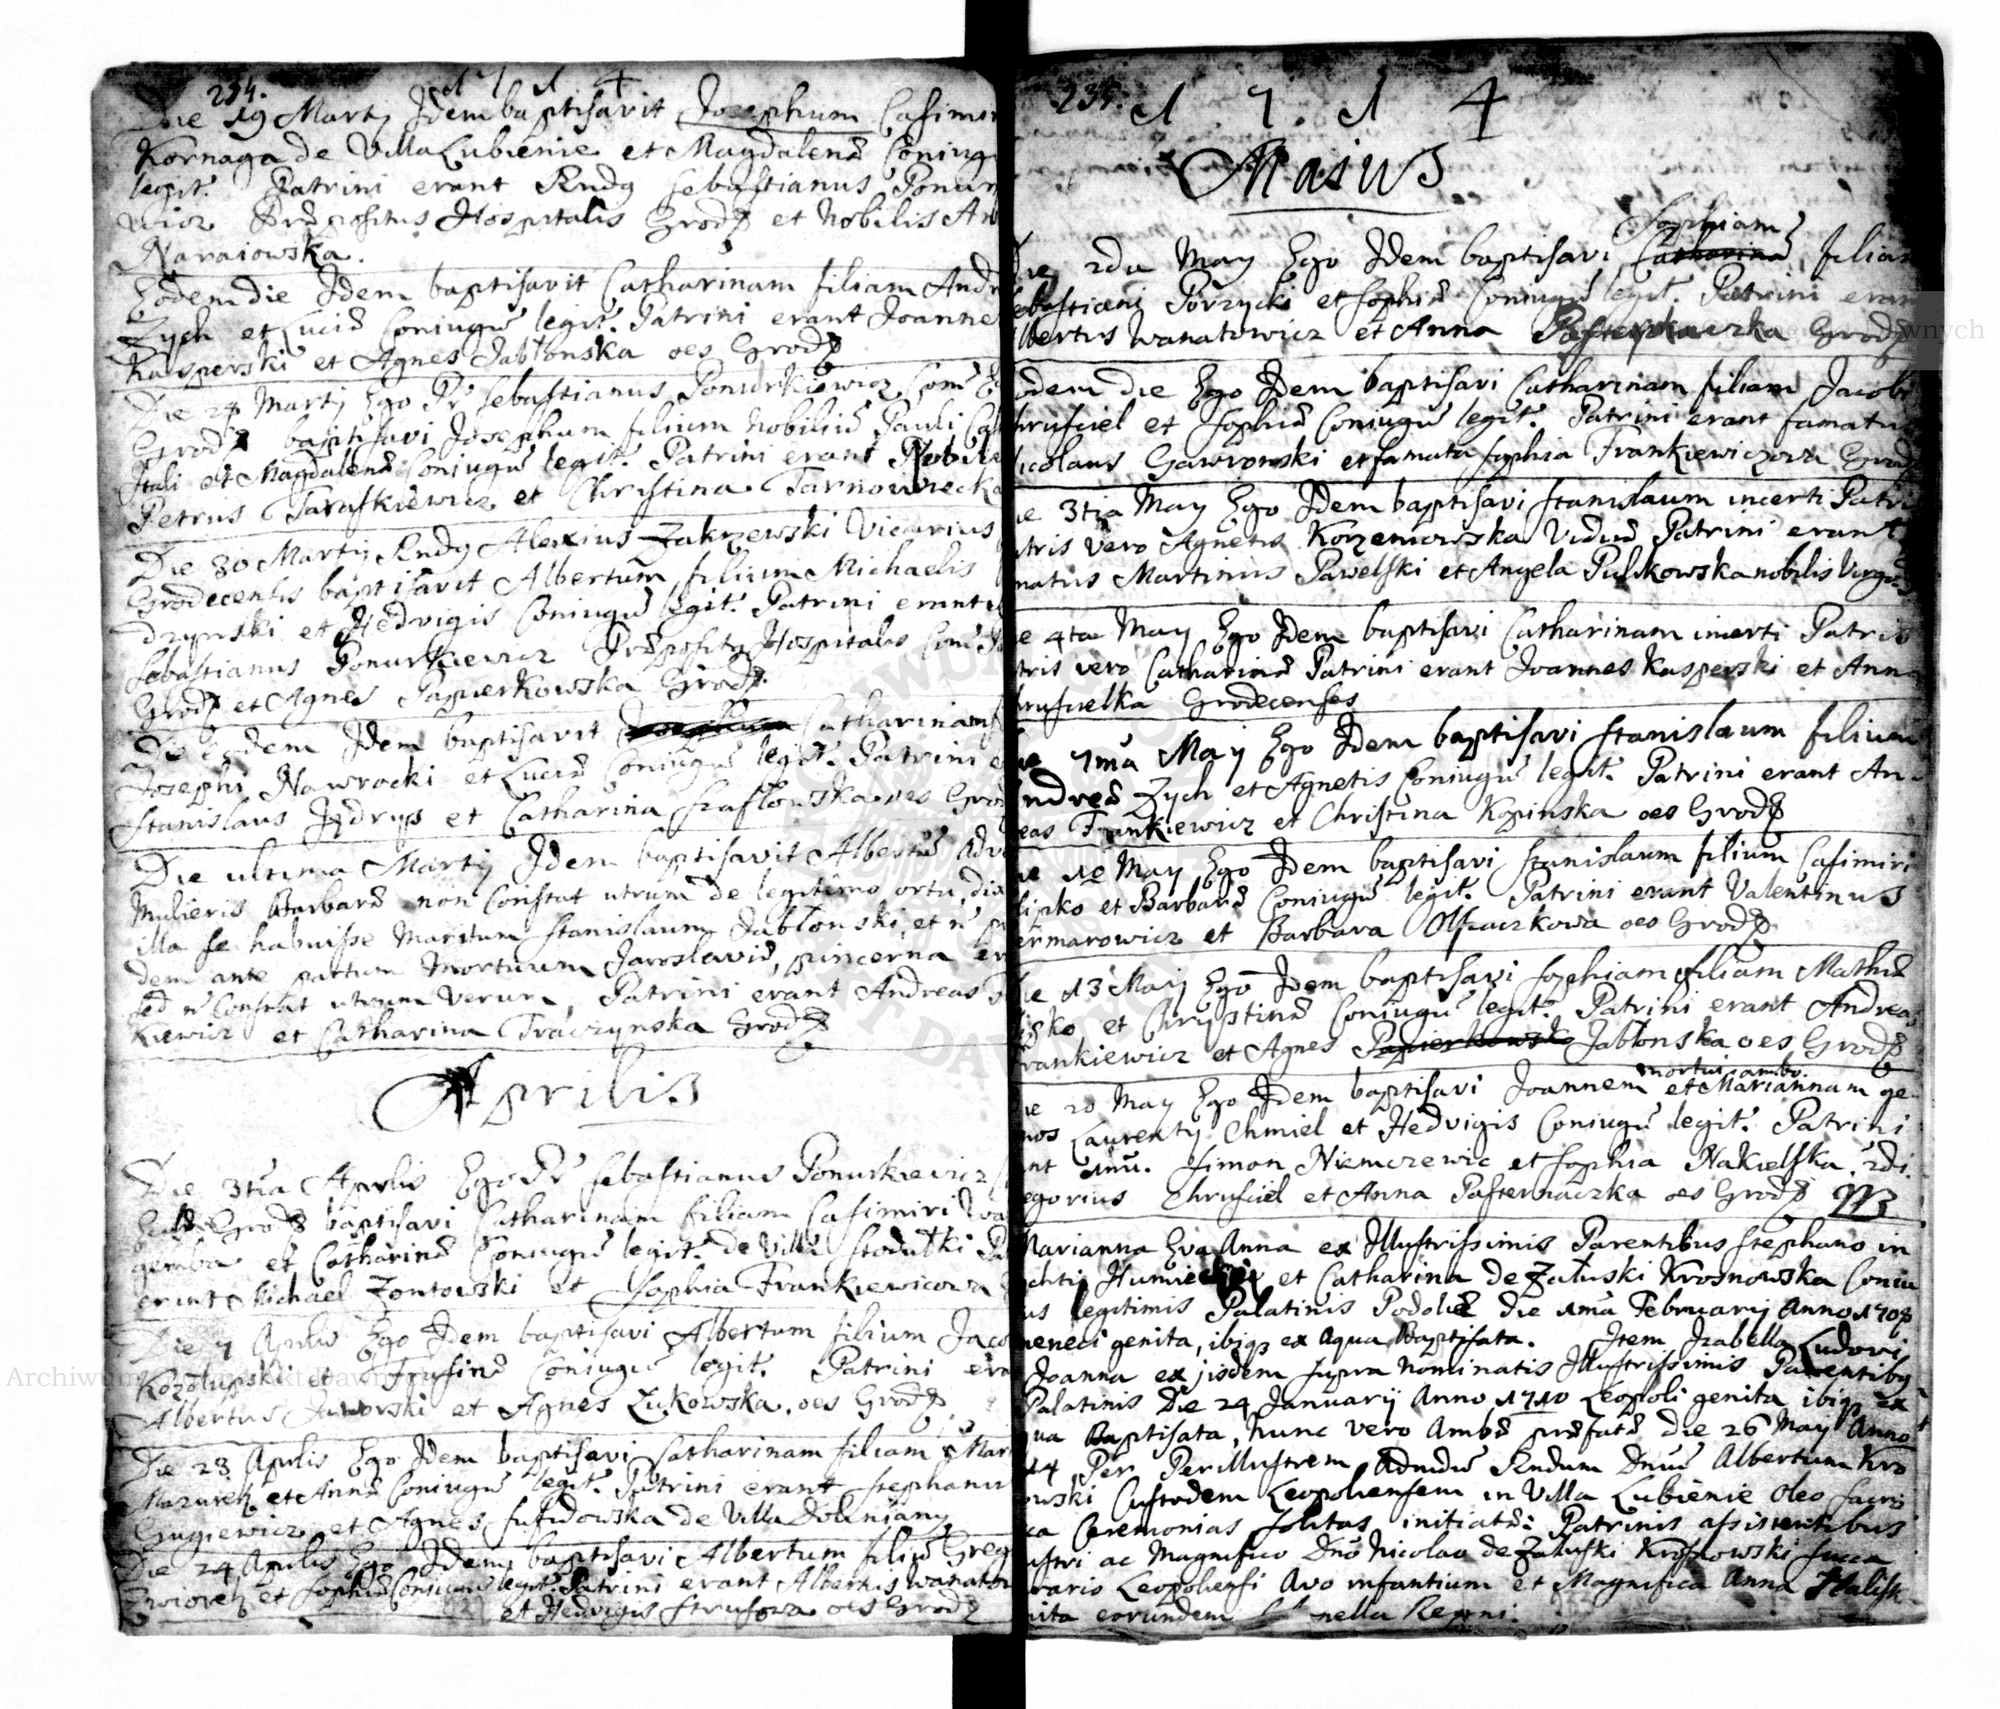 234. 1 7 1 4
Die 19 Martij Idem baptisavit Josephum Casimir
Kornaga de Villa Lubienie et Magdalenæ Coniug
legit. Patrini erant Rndg Sebastianus Ponur
wicz Præpositus Hospitalis Grod et Nobilis An
Naraiowska.
Eodem die Idem baptisavit Catharinam filiam Andr
Zych et Luciæ Coniugū legit. Patrini erant Joanne
Kasperski et Agnes Jabłonska oes Grod
Die 28 Martij Ego Pr Sebastianus Ponurkiewicz Com
Grod baptisavi Josephum filium Nobiliū Pauli
Itali et Magdalenæ Coniugū legit. Patrini erant Nobile
Petrus Taraskiewicz et Christina Tarnowiecka
Die 30 Martij Rndg Alexius Zakrzewski Vicarius
Grodecensis baptisavit Albertum filium Michaelis
drzynski et Hedvigis Coniugū legit. Patrini erant
Sebastianus Ponurkiewicz Præpositg Hospitalis Com
Grod et Agnes Papierkowska Grod
Die Eadem Idem baptisavit Catharinam
Josephi Nawrocki et Luciæ Coniugū legit. Patrini e
Stanislaus Jędryś et Catharina Szafłowska oes Grod
Die ultima Martij Idem baptisavit Albertū adv
Mulieris Barbaræ non Constat utrum de legitimo ortu, dix
illa se habuisse Maritum Stanislaum Jabłonski, et n
dem ante partum mortuum Jaroslaviæ, pincerna er
sed n Constat utrum verum, Patrini erant Andreas
kiewicz et Catharina Traczynska Grod
Aprilis
Die 3tia Aprilis Ego Pr Sebastianus Ponurkiewicz
Grod baptisavi Catharinam filiam Casimiri
gemba et Catharinæ Coniugū legit. de Villa Stodułki
erant Michael Zontowski et Sophia Frankiewicowa
Die 7 Aprilis Ego Idem baptisavi Albertum filium Jaco
Kozołupski et Trusinæ Coniugū legit. Patrini era
Albertus Jaworski et Agnes Zukowska oes Grod
Die 23 Aprilis Ego Idem baptisavi Catharinam filiam Mari
Mazurek et Annæ Coniugū legit. Patrini erant Stephanus
Gugiewicz et Agnes Sufidowska de Villa Doliniany
Die 24 Aprilis Ego Idem baptisavi Albertum filiū Greg
Zwiorek et Sophiæ Coniugū legit. Patrini erant Albertus Wanatow
et Hedvigis Strusowa oes Grod
235. 1 7 1 4
Maius
Sophiam
Die 2da May Ego Idem baptisavi Catharinæ filiam
Sebastiani Porzycki et Sophiæ Coniugū legit. Patrini eran
lbertus Wanatowicz et Anna Pasternaczka Grod
odem die Ego Idem baptisavi Catharinam filiam Jacobi
hrusciel et Sophiæ Coniugū legit. Patrini erant famatus
icolaus Gawronski et famata Sophia Frankiewiczowa Grod
ie 3tia May Ego Idem baptisavi Stanislaum incerti Patri
tris vero Agnetis Korzeniowska Viduæ Patrini erant
matus Martinus Pawelski et Angela Pulikowska nobilis Virgo
e 4ta May Ego Idem baptisavi Catharinam incerti Patris
tris vero Catharinæ Patrini erant Joannes Kasperski et Anna
hruscielka Grodecenses
ie 7ma May Ego Idem baptisavi Stanislaum filium
Andreæ Zych et Agnetis Coniugū legit. Patrini erant An-
eas Frankiewicz et Christina Kopinska oes Grod
ie 12 May Ego Idem baptisavi Stanislaum filium Casimiri
lipko et Barbaræ Coniugū legit. Patrini erant Valentinus
ermarowicz et Barbara Olszaczkowa oes Grod
ie 13 Maij Ego Idem baptisavi Sophiam filiam Mathiæ
lisko et Chrystinæ Coniugū legit. Patrini erant Andreas
rankiewicz et Agnes Papierkowsk Jabłonska oes Grod
mortui ambo.
ie 20 May Ego Idem baptisavi Joannem et Mariannam ge-
nos Laurenty Chmiel et Hedvigis Coniugū legit. Patrini
nt 1mi. Simon Niemczewic et Sophia Nakielska. 2di
egorius Chrusciel et Anna Pasternaczka oes Grod NB
Marianna Eva Anna ex Illustrissimis Parentibus Stephano in
chty Humiecki et Catharina de Załuski Krosnowska Coniu
us legitimis Palatinis Podoliæ die 1ma Februarij Anno 1708
meneci genita, ibiq ex Aqua Baptisata. Item Izabella Ludovi
Joanna ex ijsdem supra nominatis Illustrissimis Parentibg
Palatinis Die 24 Januarij Anno 1710 Leopoli genita ibiq ex
qua Baptisata, Nunc vero Ambæ præfatæ die 26 May Anno
14 Per Perillustrem Admdū Rndum Dnū Albertum Kro
owski Custodem Leopoliensem in Villa Lubienie Oleo Sacro
ta Ceremonias solitas initiatæ: Patrinis assistentibus
ustri ac Magnifico Dnō Nicolao de Załuski Krosnowski Succa
rario Leopoliensi Avo infantium et Magnifica Anna Halisk
nita eorundem nella Regni.